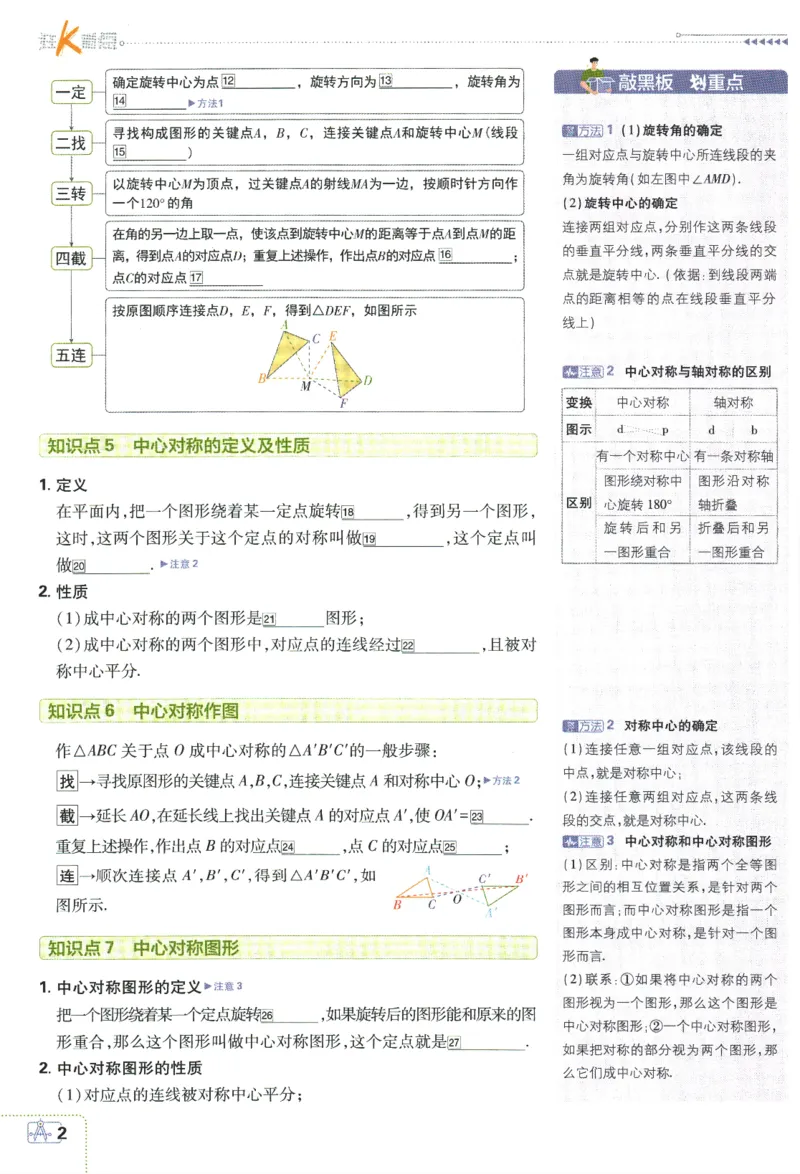 一定
确定旋转中心为点 12 ________，旋转方向为 13 ________，旋转角为
14 ________ ▶方法1
二找
寻找构成图形的关键点A，B，C，连接关键点A和旋转中心M(线段
15 ________)
三转
以旋转中心M为顶点，过关键点A的射线MA为一边，按顺时针方向作
一个120°的角
四截
在角的另一边上取一点，使该点到旋转中心M的距离等于点A到点M的距
离，得到点A的对应点D；重复上述操作，作出点B的对应点 16 ________；
点C的对应点 17 ________
五连
按原图顺序连接点D，E，F，得到△DEF，如图所示
A
C
E
B
M
D
F
知识点5 中心对称的定义及性质
1. 定义
在平面内,把一个图形绕着某一定点旋转 18 ________,得到另一个图形,
这时,这两个图形关于这个定点的对称叫做 19 ________,这个定点叫
做 20 ________. ▶注意2
2. 性质
(1)成中心对称的两个图形是 21 ________图形;
(2)成中心对称的两个图形中,对应点的连线经过 22 ________,且被对
称中心平分.
知识点6 中心对称作图
作△ABC关于点O成中心对称的△A′B′C′的一般步骤:
找→寻找原图形的关键点A,B,C,连接关键点A和对称中心O;▶方法2
截→延长AO,在延长线上找出关键点A的对应点A′,使OA′= 23 ________.
重复上述操作,作出点B的对应点 24 ________,点C的对应点 25 ________;
连→顺次连接点A′,B′,C′,得到△A′B′C′,如
图所示.
A
C′
B′
B
C
O
A′
知识点7 中心对称图形
1. 中心对称图形的定义▶注意3
把一个图形绕着某一个定点旋转 26 ________,如果旋转后的图形能和原来的图
形重合,那么这个图形叫做中心对称图形,这个定点就是 27 ________.
2. 中心对称图形的性质
(1)对应点的连线被对称中心平分;
2
敲黑板 划重点
方法1 (1)旋转角的确定
一组对应点与旋转中心所连线段的夹
角为旋转角(如左图中∠AMD).
(2)旋转中心的确定
连接两组对应点,分别作这两条线段
的垂直平分线,两条垂直平分线的交
点就是旋转中心.(依据:到线段两端
点的距离相等的点在线段垂直平分
线上)
注意2 中心对称与轴对称的区别
变换 中心对称 轴对称
图示 d p d b
区别
有一个对称中心 有一条对称轴
图形绕对称中 图形沿对称
心旋转180° 轴折叠
旋转后和另 折叠后和另
一图形重合 一图形重合
方法2 对称中心的确定
(1)连接任意一组对应点,该线段的
中点,就是对称中心;
(2)连接任意两组对应点,这两条线
段的交点,就是对称中心.
注意3 中心对称和中心对称图形
(1)区别:中心对称是指两个全等图
形之间的相互位置关系,是针对两个
图形而言;而中心对称图形是指一个
图形本身成中心对称,是针对一个图
形而言.
(2)联系:①如果将中心对称的两个
图形视为一个图形,那么这个图形是
中心对称图形;②一个中心对称图形,
如果把对称的部分视为两个图形,那
么它们成中心对称.